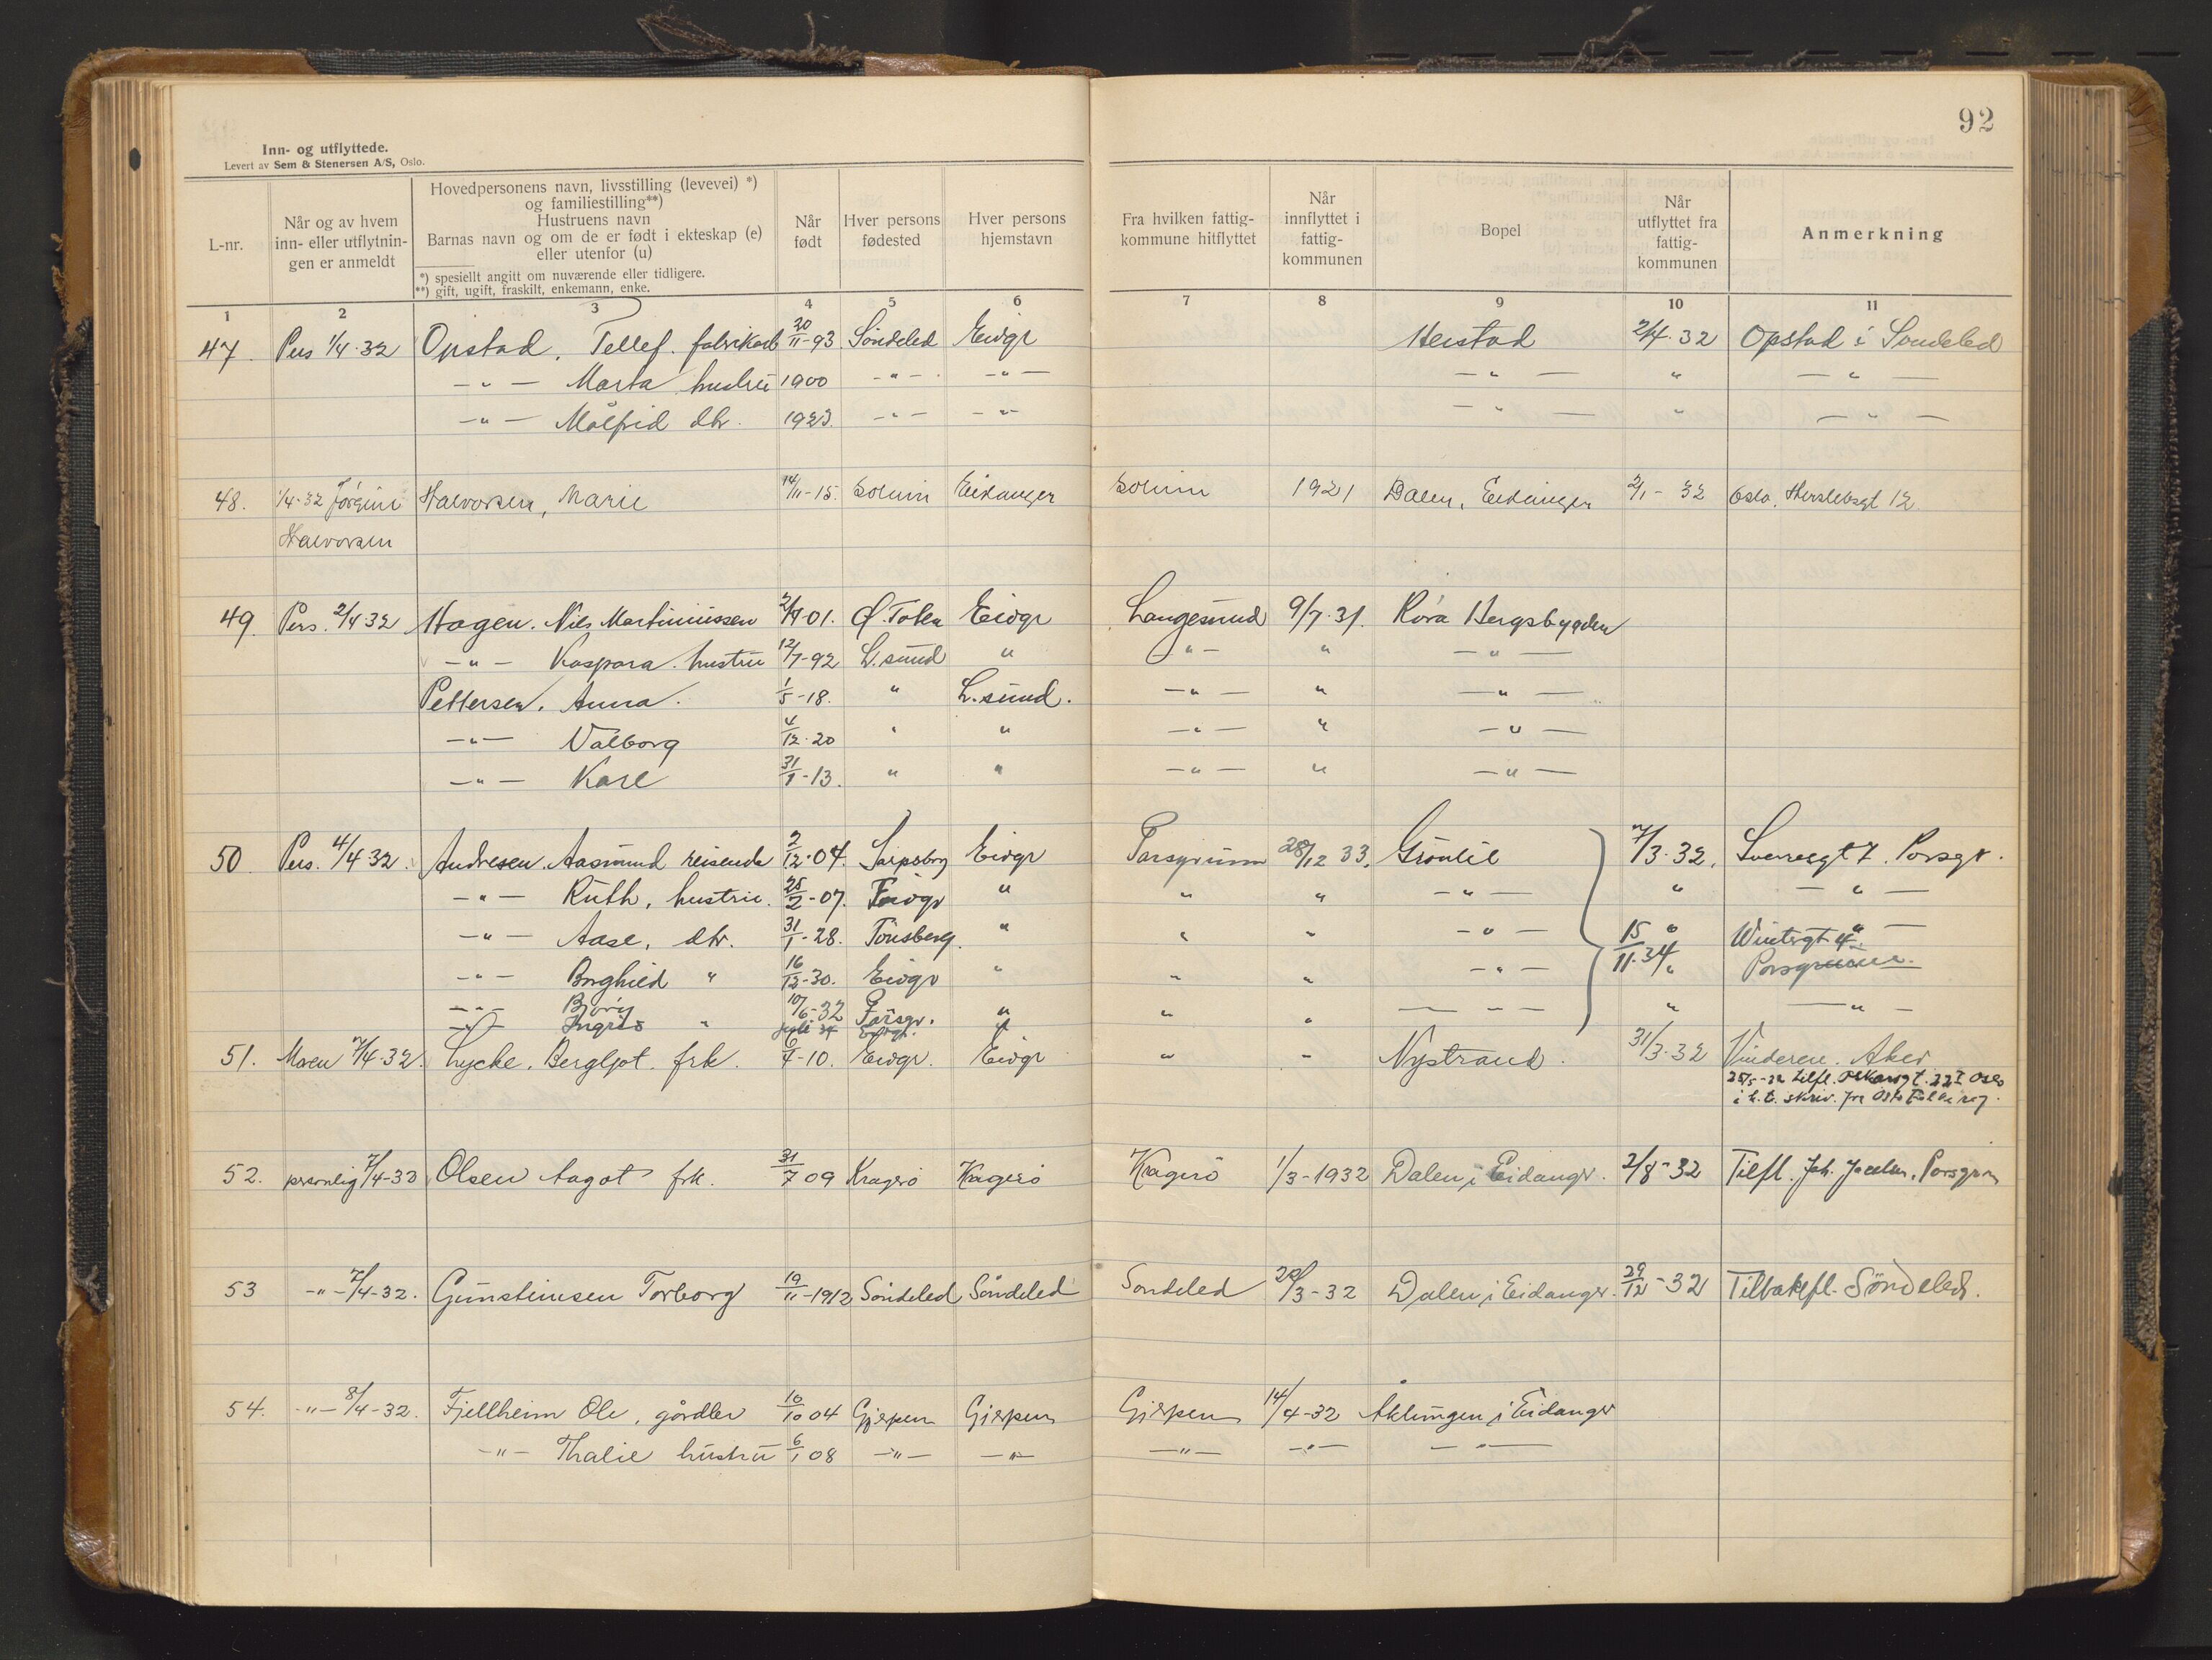 92
Inn- og utflyttede.
Levert av Sem & Stenersen A/S, Oslo.
L-nr.
Når og av hvem
inn- eller utflytnin-
gen er anmeldt
Hovedpersonens navn, livsstilling (levevei) *)
og familiestilling**)
Hustruens navn
Barnas navn og om de er født i ekteskap (e)
eller utenfor (u)
*) spesiellt angitt om nuværende eller tidligere.
**) gift, ugift, fraskilt, enkemann, enke.
Når
født
Hver persons
fødested
Hver persons
hjemstavn
Fra hvilken fattig-
kommune hitflyttet
Når
innflyttet i
fattig-
kommunen
Bopel
Når
utflyttet fra
fattig-
kommunen
Anmerkning
1 2 3 4 5 6 7 8 9 10 11
47. Pers 1/4-32 Opstad, Tellef. fabrikarb 20/11-93 Söndeled Eidgr Herstad 2/4-32 Opstad i Sondeled
-"- Marta hustru 1900 -"- -"- -"- " -"-
-"- Målfrid dtr. 1923. -"- -"- -"- " -"-
48. 1/4-32 Jørgine Halvorsen, Marie 14/11-15. Solum Eidanger Solum 1921 Dalen, Eidanger 2/1-32 Oslo, Herslebsgt 12
Halvorsen
49. Pers. 2/4-32 Hagen. Nils Martiniussen 2/4-01. Ø. Toten Eidgr Langesund 9/7-31. Röra Bergsbygden
-"- Kaspara. hustru 12/7-92 L.sund " -"- " -"-
Pettersen. Anna. 1/5-18. " L.sund. -"- " -"-
-"- Valborg 4/12-20 " " -"- " -"-
-"- Kare 31/1-13. " " -"- " -"-
50 Pers. 4/4-32. Andresen. Aasmund reisende 2/12-04. Sarpsborg Eidgr Porsgrunn 28/12 33. Grönlie 7/3-32. Sverresgt 7. Porsgr.
-"- Ruth, hustru. 25/2-07. Eidgr " " " -"- " -"-
-"- Aase, dtr. 31/1-28. Tönsberg. " " " -"- " -"-
15/11-34 Wintergt 4.
-"- Borghild " 16/12-30. Eidgr " " " -"- " Porsgrunn.
-"- Björg 10/6-32 Porsgr. " " " -"- " -"-
-"- Ingrid " Juli 34 Eidgr. "
51. Moren 7/4-32. Lycke. Bergljot. frk. 6/4-10. Eidgr. Eidgr " " Nystrand. 31/3-32 Vinderen. Aker
25/5-32 tilfl. Oskarsgt. 22 I Oslo
i h.t. skriv. fra Oslo Folkereg.
52. personlig 7/4-32 Olsen Aagot frk. 31/7 09 Kragerö Kragerö Kragerö 1/3-1932 Dalen i Eidangr. 2/8-32 Tilfl. Joh. Jacobsen, Porsgrunn
53 -"- 7/4-32. Gunsteinsen Torborg 19/11-1912 Söndeled Söndeled Sondeled 20/3-32 Dalen i Eidanger. 29/12-32 Tilbakefl. Söndeled.
54. -"- 8/4-32. Fjellheim Ole, gårdbr 10/10 04 Gjerpen Gjerpen Gjerpen 14/4-32 Åklungen i Eidanger
-"- Thalie hustru 6/1 08 -"- -"- -"- -"- -"-